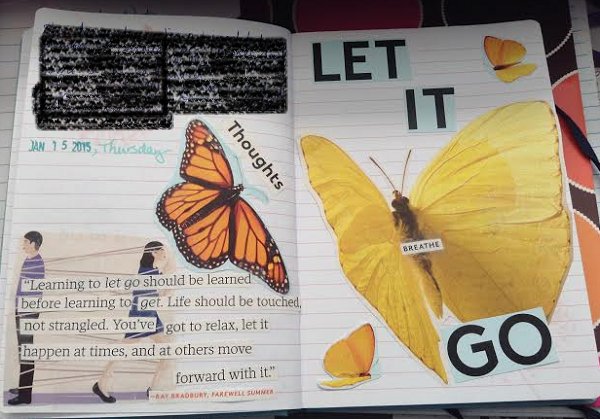 JAN 15 2015, Thursday
Thoughts
“Learning to let go should be learned
before learning to get. Life should be touched,
not strangled. You've got to relax, let it
happen at times, and at others move
forward with it.”
—RAY BRADBURY, FAREWELL SUMMER
LET
IT
BREATHE
GO